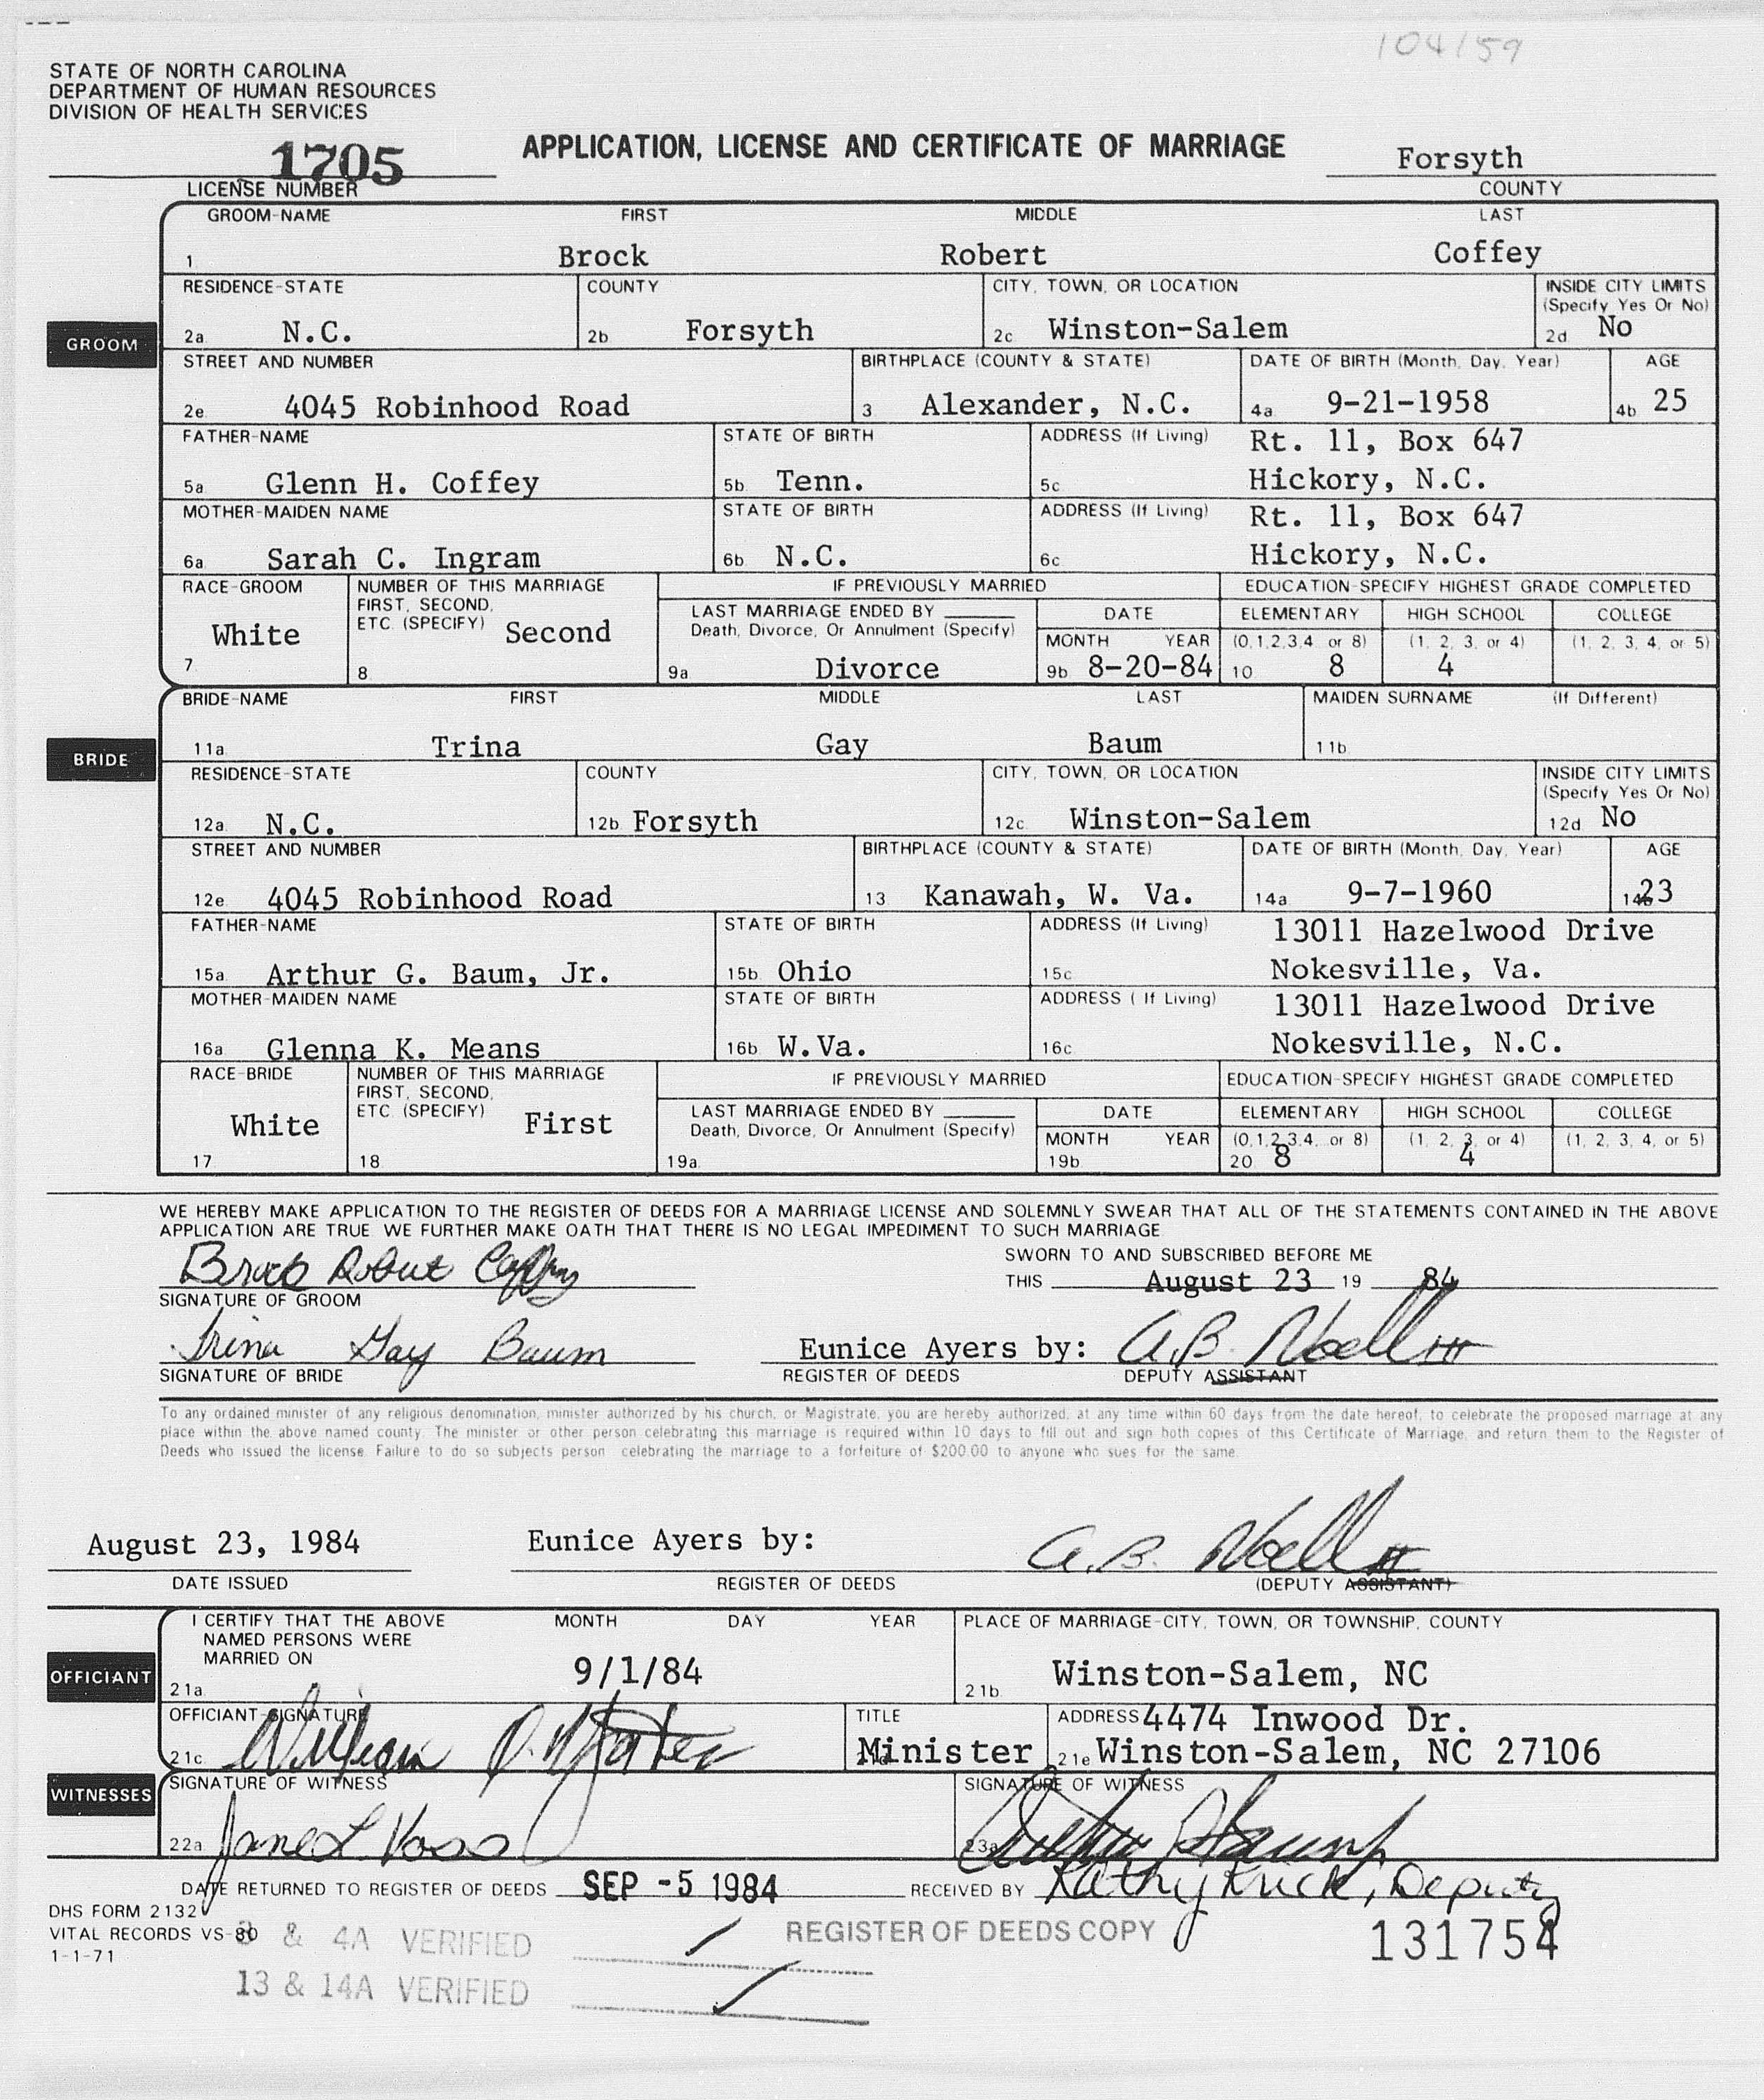 104/59
STATE OF NORTH CAROLINA
DEPARTMENT OF HUMAN RESOURCES
DIVISION OF HEALTH SERVICES
1705
LICENSE NUMBER
APPLICATION, LICENSE AND CERTIFICATE OF MARRIAGE
Forsyth
COUNTY
GROOM
GROOM-NAME FIRST MIDDLE LAST
1 Brock Robert Coffey
RESIDENCE-STATE COUNTY CITY, TOWN, OR LOCATION INSIDE CITY LIMITS
(Specify Yes Or No)
2a N.C. 2b Forsyth 2c Winston-Salem 2d No
STREET AND NUMBER BIRTHPLACE (COUNTY & STATE) DATE OF BIRTH (Month, Day, Year) AGE
2e 4045 Robinhood Road 3 Alexander, N.C. 4a 9-21-1958 4b 25
FATHER-NAME STATE OF BIRTH ADDRESS (If Living) Rt. 11, Box 647
5a Glenn H. Coffey 5b Tenn. 5c Hickory, N.C.
MOTHER-MAIDEN NAME STATE OF BIRTH ADDRESS (If Living) Rt. 11, Box 647
6a Sarah C. Ingram 6b N.C. 6c Hickory, N.C.
RACE-GROOM NUMBER OF THIS MARRIAGE IF PREVIOUSLY MARRIED EDUCATION-SPECIFY HIGHEST GRADE COMPLETED
FIRST, SECOND, LAST MARRIAGE ENDED BY DATE ELEMENTARY HIGH SCHOOL COLLEGE
ETC. (SPECIFY) Death, Divorce, Or Annulment (Specify) MONTH YEAR (0,1,2,3,4 or 8) (1, 2, 3, or 4) (1, 2, 3, 4, or 5)
7 White 8 Second 9a Divorce 9b 8-20-84 10 8 4
BRIDE
BRIDE-NAME FIRST MIDDLE LAST MAIDEN SURNAME (If Different)
11a Trina Gay Baum 11b
RESIDENCE-STATE COUNTY CITY, TOWN, OR LOCATION INSIDE CITY LIMITS
(Specify Yes Or No)
12a N.C. 12b Forsyth 12c Winston-Salem 12d No
STREET AND NUMBER BIRTHPLACE (COUNTY & STATE) DATE OF BIRTH (Month, Day, Year) AGE
12e 4045 Robinhood Road 13 Kanawah, W. Va. 14a 9-7-1960 14b 23
FATHER-NAME STATE OF BIRTH ADDRESS (If Living) 13011 Hazelwood Drive
15a Arthur G. Baum, Jr. 15b Ohio 15c Nokesville, Va.
MOTHER-MAIDEN NAME STATE OF BIRTH ADDRESS ( If Living) 13011 Hazelwood Drive
16a Glenna K. Means 16b W.Va. 16c Nokesville, N.C.
RACE-BRIDE NUMBER OF THIS MARRIAGE IF PREVIOUSLY MARRIED EDUCATION-SPECIFY HIGHEST GRADE COMPLETED
FIRST, SECOND, LAST MARRIAGE ENDED BY DATE ELEMENTARY HIGH SCHOOL COLLEGE
ETC. (SPECIFY) Death, Divorce, Or Annulment (Specify) MONTH YEAR (0,1,2,3,4, or 8) (1, 2, 3, or 4) (1, 2, 3, 4, or 5)
17 White 18 First 19a 19b 20 8 4
WE HEREBY MAKE APPLICATION TO THE REGISTER OF DEEDS FOR A MARRIAGE LICENSE AND SOLEMNLY SWEAR THAT ALL OF THE STATEMENTS CONTAINED IN THE ABOVE
APPLICATION ARE TRUE WE FURTHER MAKE OATH THAT THERE IS NO LEGAL IMPEDIMENT TO SUCH MARRIAGE
Brock Robert Coffey
SIGNATURE OF GROOM
SWORN TO AND SUBSCRIBED BEFORE ME
THIS August 23 19 84
Trina Gay Baum
SIGNATURE OF BRIDE
Eunice Ayers by: A.B. Noell III
REGISTER OF DEEDS DEPUTY ASSISTANT
To any ordained minister of any religious denomination, minister authorized by his church, or Magistrate, you are hereby authorized, at any time within 60 days from the date hereof, to celebrate the proposed marriage at any
place within the above named county. The minister or other person celebrating this marriage is required within 10 days to fill out and sign both copies of this Certificate of Marriage, and return them to the Register of
Deeds who issued the license. Failure to do so subjects person celebrating the marriage to a forfeiture of $200.00 to anyone who sues for the same.
August 23, 1984 Eunice Ayers by: A.B. Noell III
DATE ISSUED REGISTER OF DEEDS (DEPUTY ASSISTANT)
OFFICIANT
I CERTIFY THAT THE ABOVE MONTH DAY YEAR PLACE OF MARRIAGE-CITY, TOWN, OR TOWNSHIP, COUNTY
NAMED PERSONS WERE
MARRIED ON
21a 9/1/84 21b Winston-Salem, NC
OFFICIANT-SIGNATURE TITLE ADDRESS 4474 Inwood Dr.
21c William Minister 21e Winston-Salem, NC 27106
WITNESSES
SIGNATURE OF WITNESS SIGNATURE OF WITNESS
22a Jane L. Voss 23a
DATE RETURNED TO REGISTER OF DEEDS SEP -5 1984 RECEIVED BY Kathy Krick, Deputy
DHS FORM 2132
VITAL RECORDS VS-80
1-1-71
3 & 4A VERIFIED
13 & 14A VERIFIED
REGISTER OF DEEDS COPY
131754